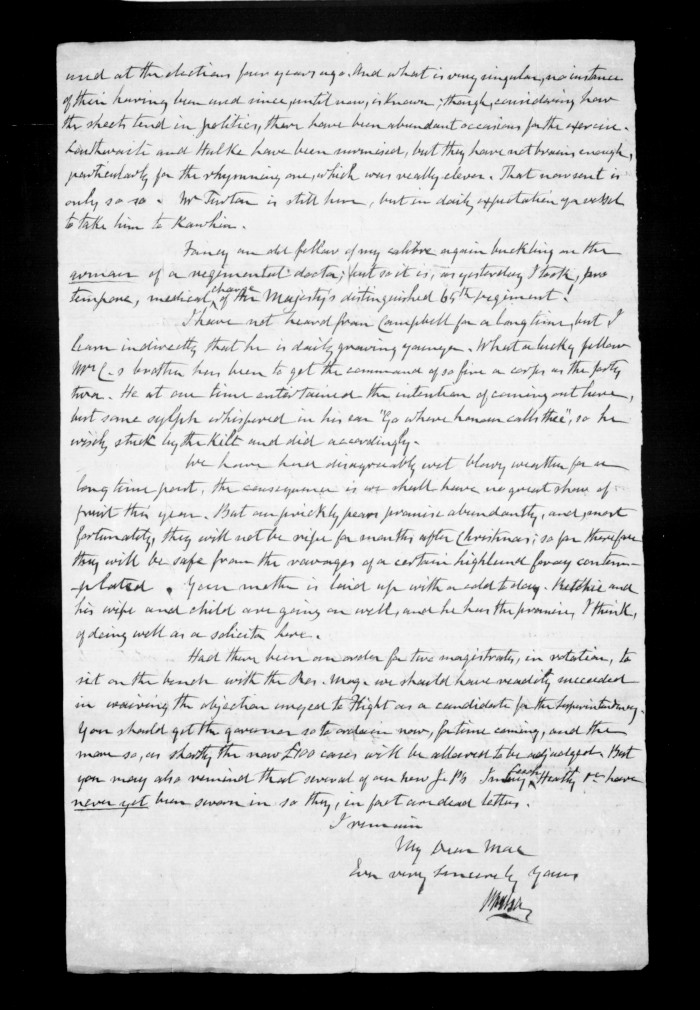 used at the elections four years ago. And what is very singular, no instance
of their having been used since, until now, is known; though, considering how
the sheets tend in politics, there have been abundant occasions for the exercise.
and Hulke have been surmised, but they have not brains enough,
particularly for the rhymning one, which was really clever. That now sent is
only so so. Mr Turton is still here, but in daily expectation of a vessel
to take him to Kawhia.
Fancy an old fellow of my calibre again buckling on the
armour of a regimental doctor; but so it is, as yesterday I took, pro
tempore, medical charge of Her Majesty's distinguished 65th regiment!
I have not heard from Campbell for a long time, but I
learn indirectly that he is daily growing younger. What a lucky fellow
Mrs C-s brother has been to get the command of so fine a corps as the forty
two. He at one time entertained the intention of coming out here,
but some sylph whispered in his ear "Go where honour calls thee", so he
wisely stuck by the kilt and did accordingly.
We have had disagreeably wet blowy weather for a
long time past, the consequence is we shall have no great show of
fruit this year. But our prickly pears promise abundantly, and, most
fortunately, they will not be ripe for months after Christmas; so far therefore
they will be safe from the ravages of a certain highland foray contem-
plated. Your mother is laid up with a cold today. Ritchie and
his wife and child are going on well, and he has the promise, I think,
of doing well as a solicitor here.
Had there been an order for two magistrates, in rotation, to
sit on the bench with the Res. Mag. we should have readily succeeded
in waiving the objection urged to Flight as a candidate for the Superintendency.
You should get the governor so to ordain now, for time coming, and the
more so, as shortly the now £100 cases will be allowed to be adjudged. But
you may also remind that several of our new J. Ps Heath &c have
never yet been sworn in so they, in fact are dead letters.
I remain
My Dear Mac
Ever very sincerely Yours